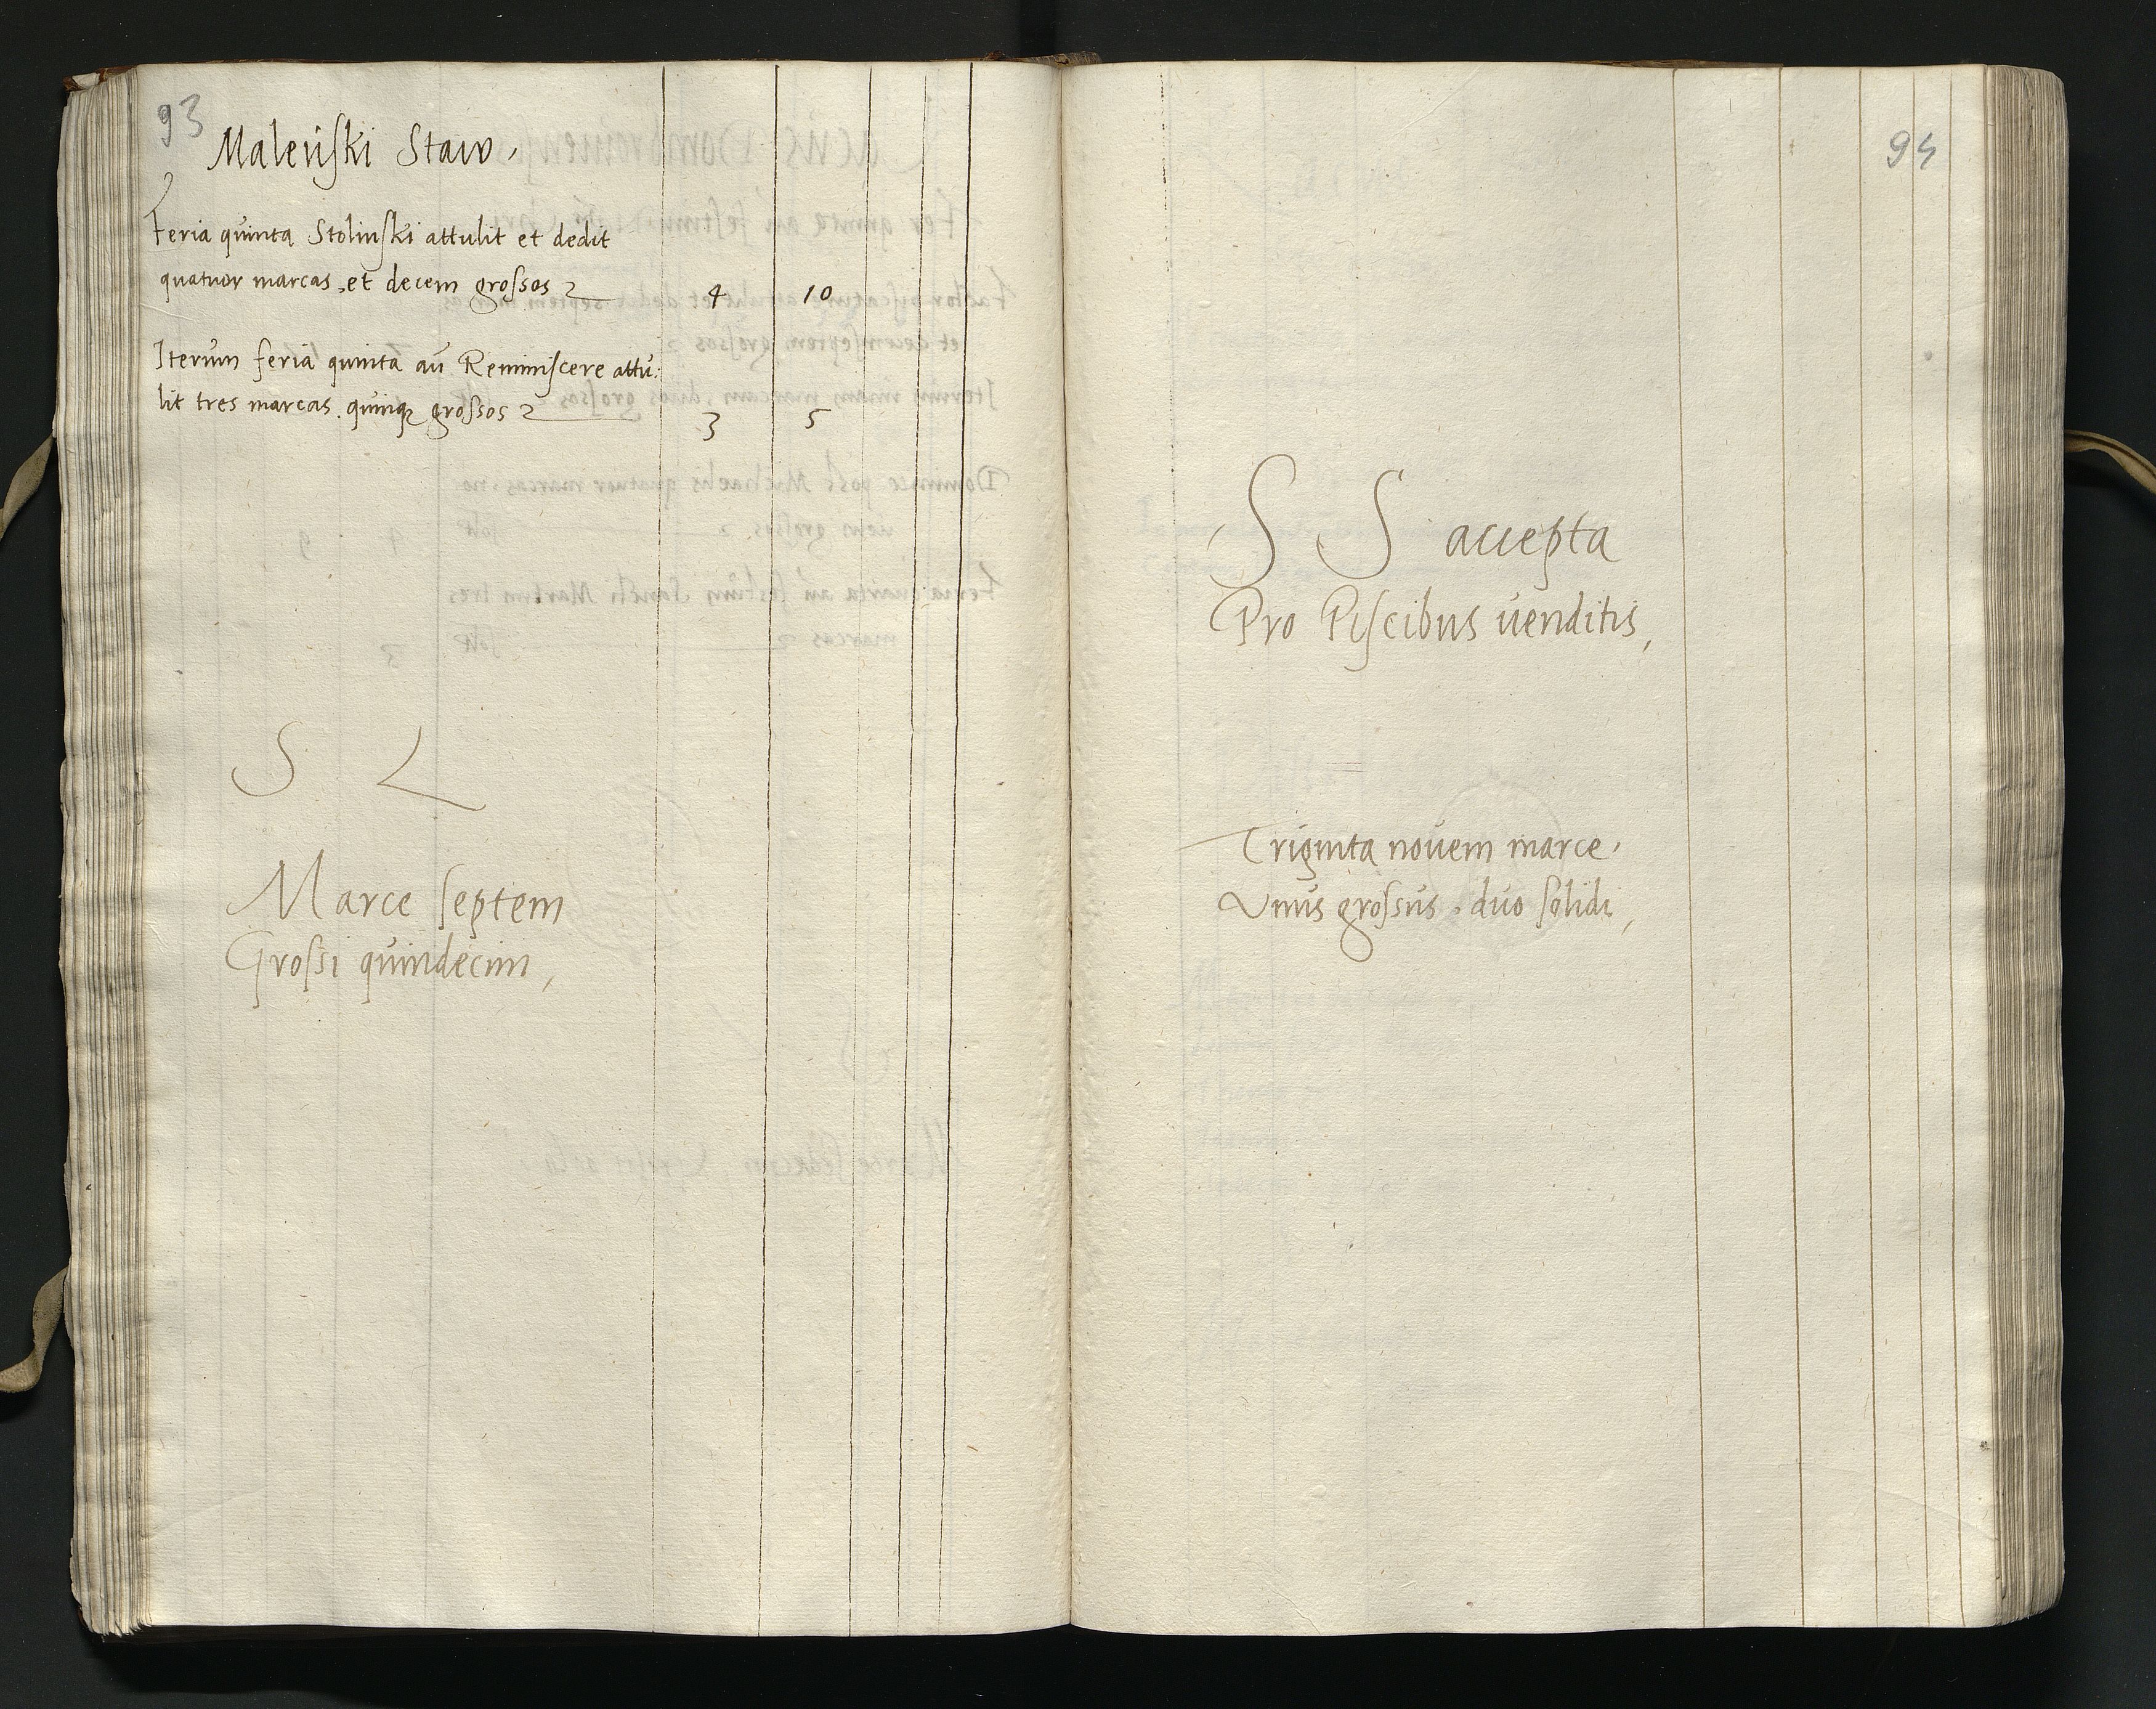 93
Maleński Staw,
Feria quinta Stolinſki attulit et dedit
quatuor marcas, et decem groſsos 4 10
Iterum feria quinta an̄ Reminiſcere attu:
lit tres marcas. quinqꝫ groſsos 3 5
S L
Marce ſeptem
Groſsi quindecim,
94
S S accepta
Pro Piſcibus uenditis,
Triginta nouem marce,
Vnus groſsus, duo ſolidi,